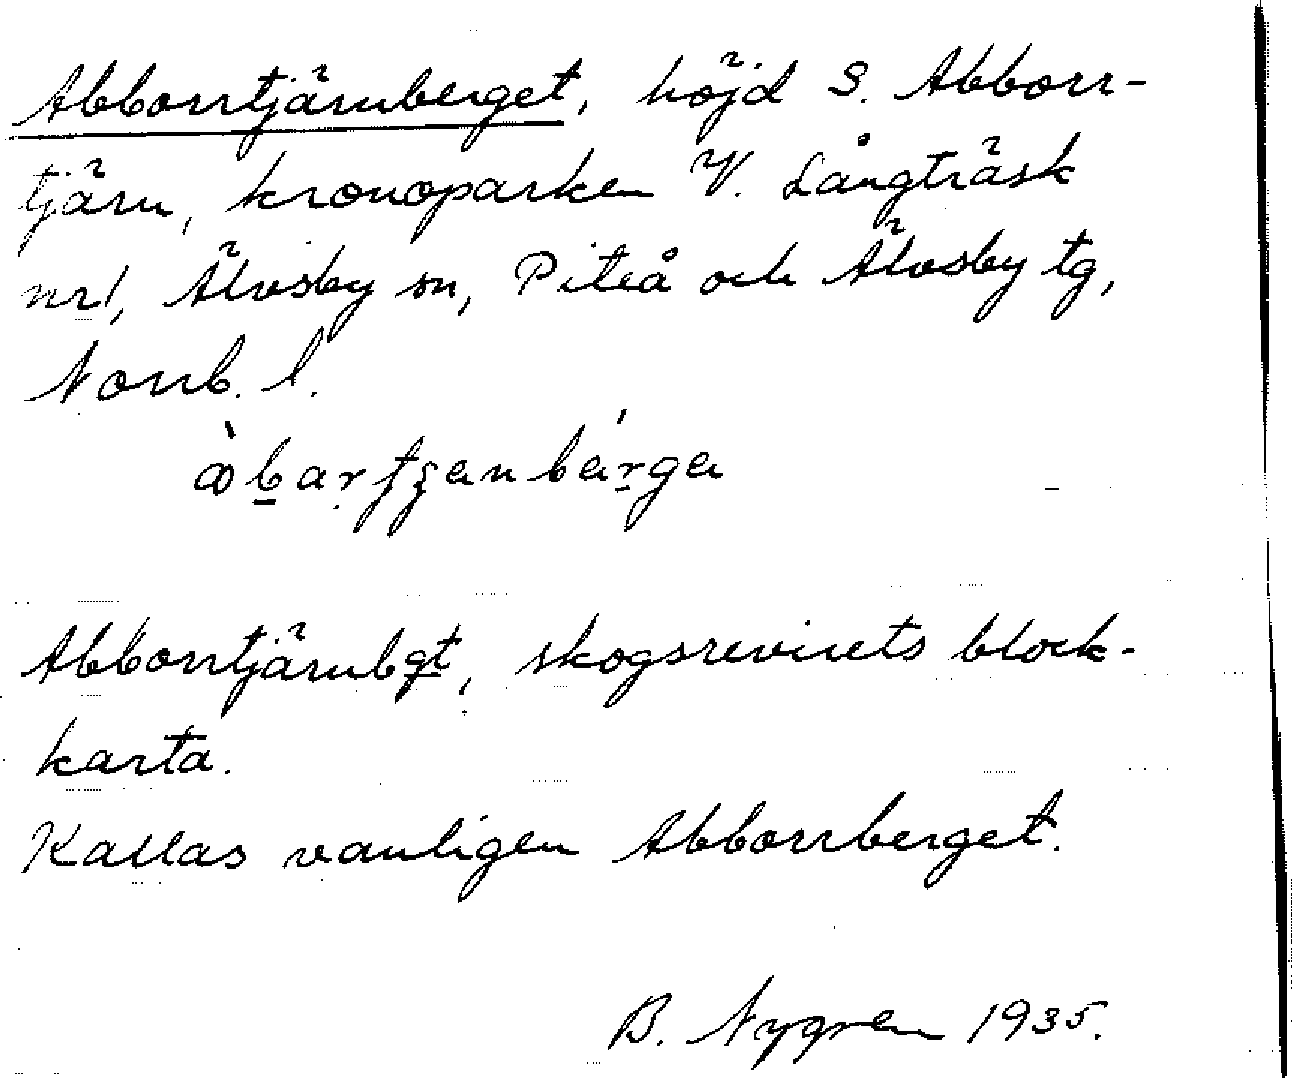 Abborrtjärnberget, höjd S. Abborr-
tjärn, kronoparken V. Långträsk
nr 1, Älvsby sn, Piteå och Älvsby tg,
Norrb. l.
Abborrtjärnbgt, skogsrevirets block-
karta.
Kallas vanligen Abborrberget.
B. Nygren 1935.